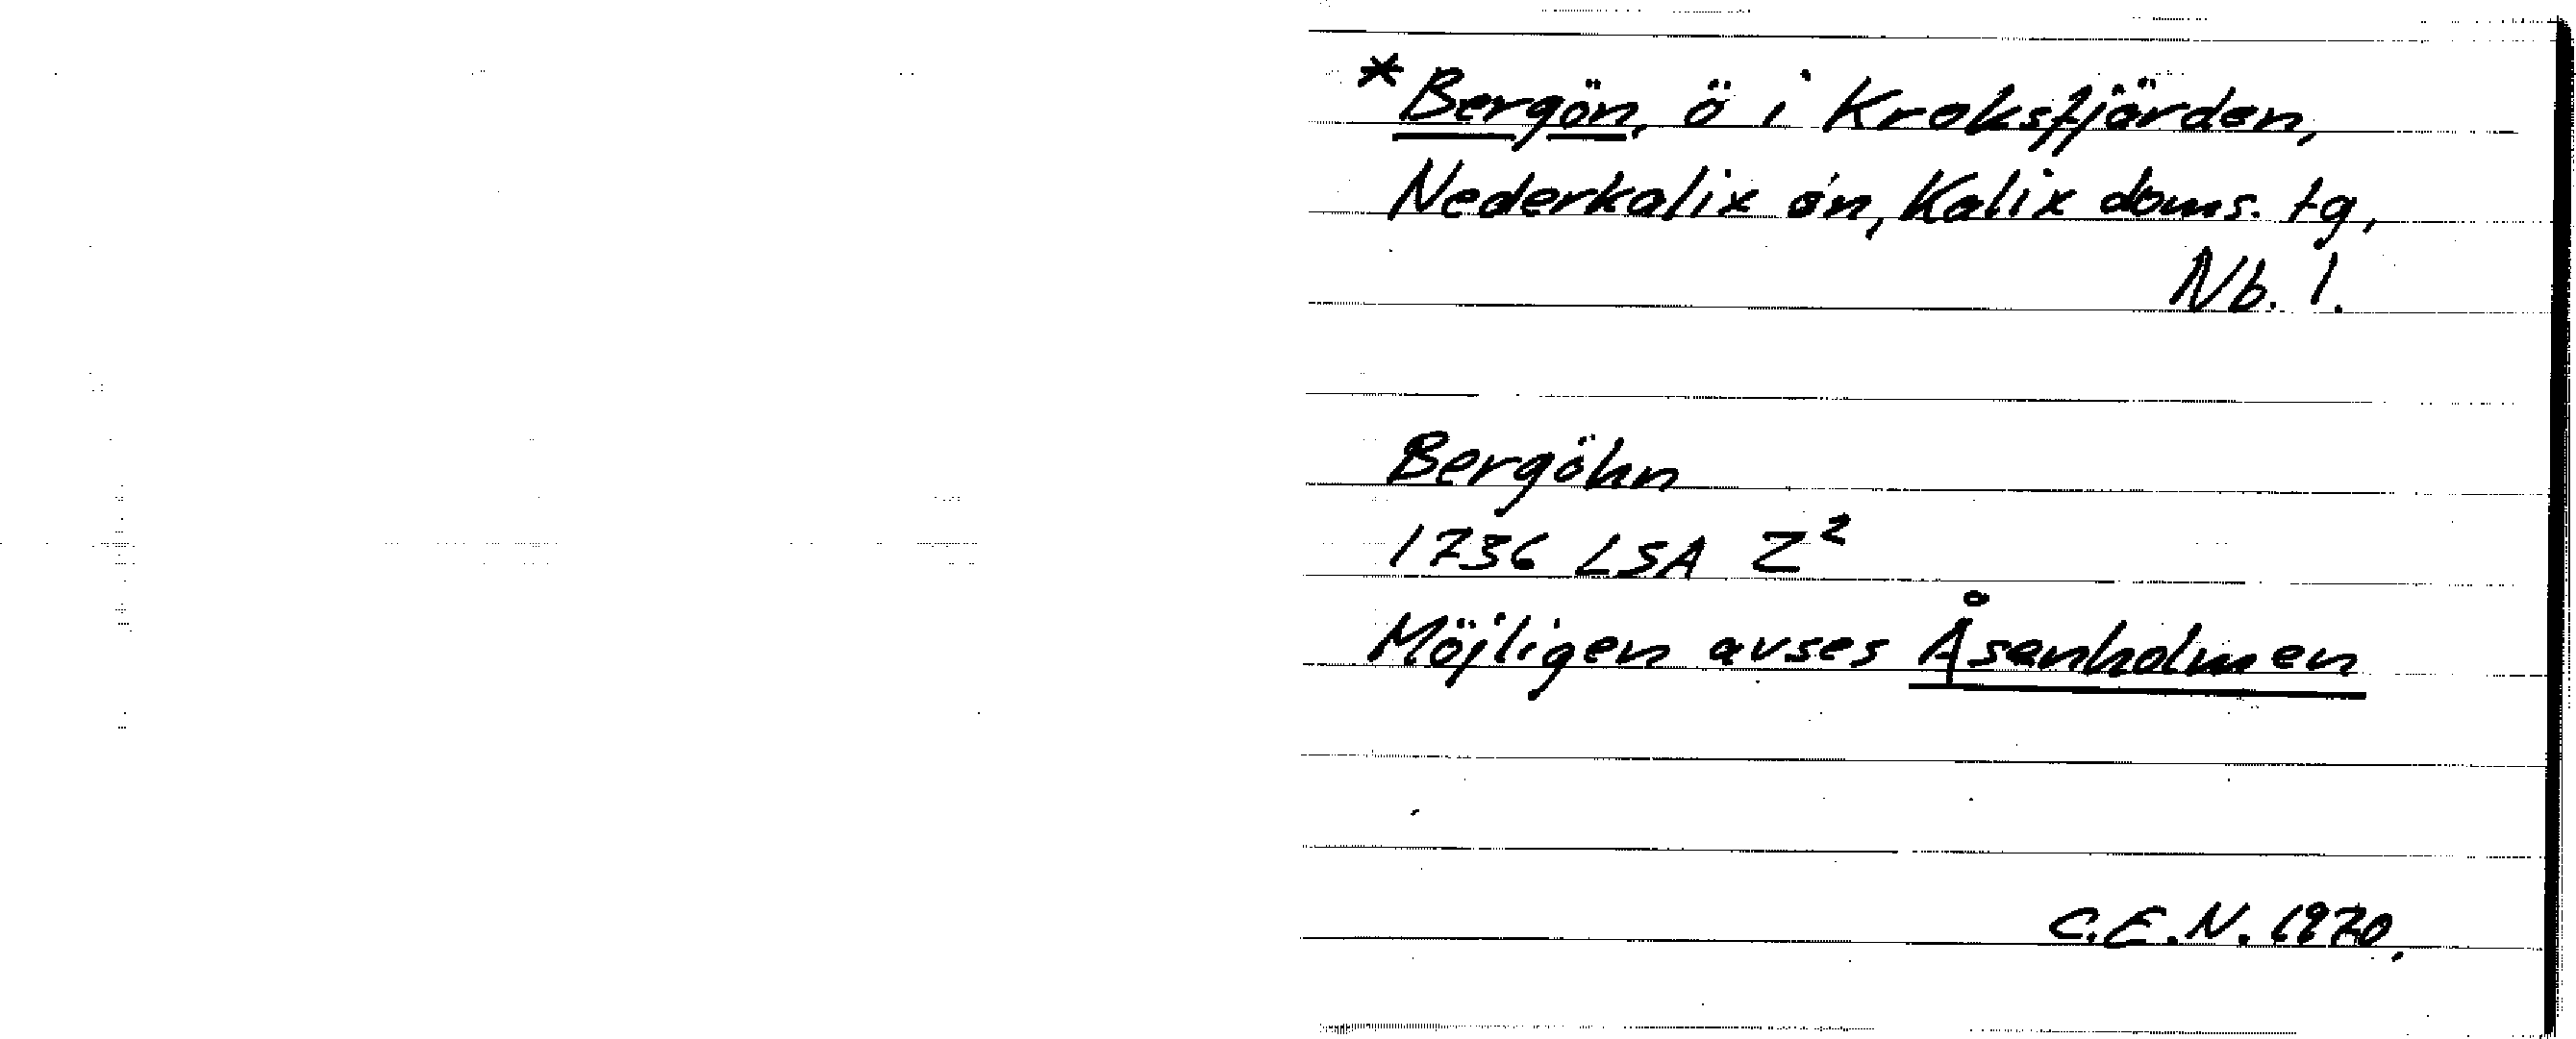 *Bergön, ö i Kroksfjärden,
Nederkalix sn, Kalix doms. tg,
Nb. l.
Bergöhn
1736 LSA Z²
Möjligen avses Åsenholmen
C.E.N. 1970.